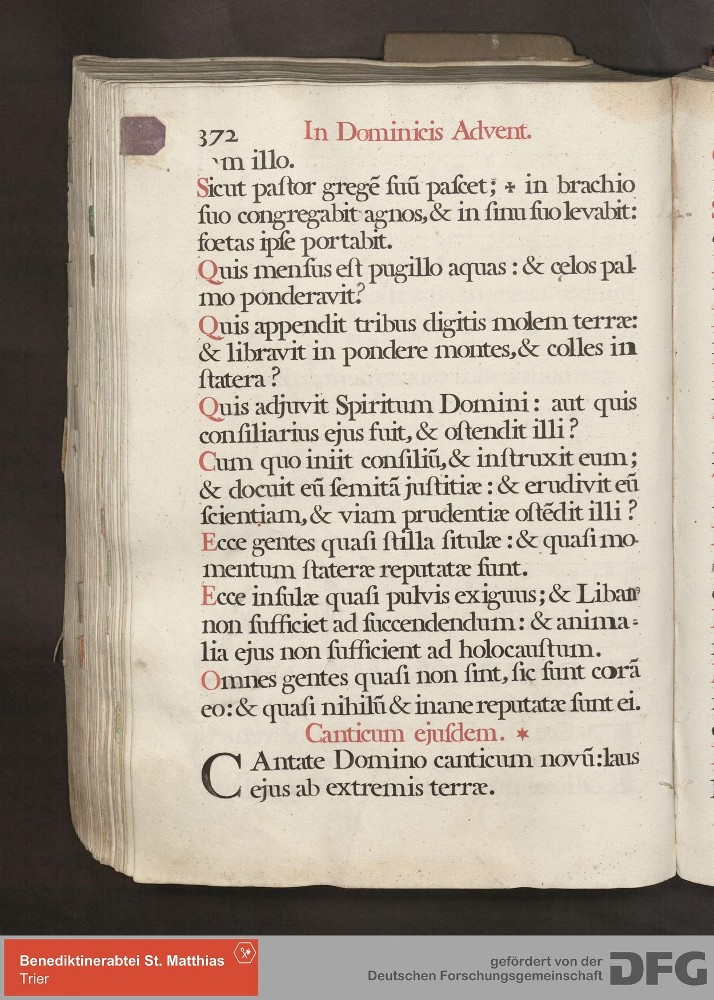 372 In Dominicis Advent.
m illo.
Sicut paſtor gregē ſuū paſcet; ✢ in brachio
ſuo congregabit agnos, & in ſinu ſuo levabit:
fœtas ipſe portabit.
Quis menſus eſt pugillo aquas: & cęlos pal-
mo ponderavit?
Quis appendit tribus digitis molem terræ:
& libravit in pondere montes, & colles in
ſtatera?
Quis adjuvit Spiritum Domini: aut quis
conſiliarius ejus fuit, & oſtendit illi?
Cum quo iniit conſiliū, & inſtruxit eum;
& docuit eū ſemitā juſtitiæ: & erudivit eū
ſcientiam, & viam prudentiæ oſtēdit illi?
Ecce gentes quaſi ſtilla ſitulæ: & quaſi mo-
mentum ſtateræ reputatæ ſunt.
Ecce inſulæ quaſi pulvis exiguus; & Liban9
non ſufficiet ad ſuccendendum: & anima-
lia ejus non ſufficient ad holocauſtum.
Omnes gentes quaſi non ſint, ſic ſunt corā
eo: & quaſi nihilū & inane reputatæ ſunt ei.
Canticum ejuſdem. ✶
CAntate Domino canticum novū: laus
ejus ab extremis terræ.
Benediktinerabtei St. Matthias
Trier
gefördert von der
Deutschen Forschungsgemeinschaft DFG